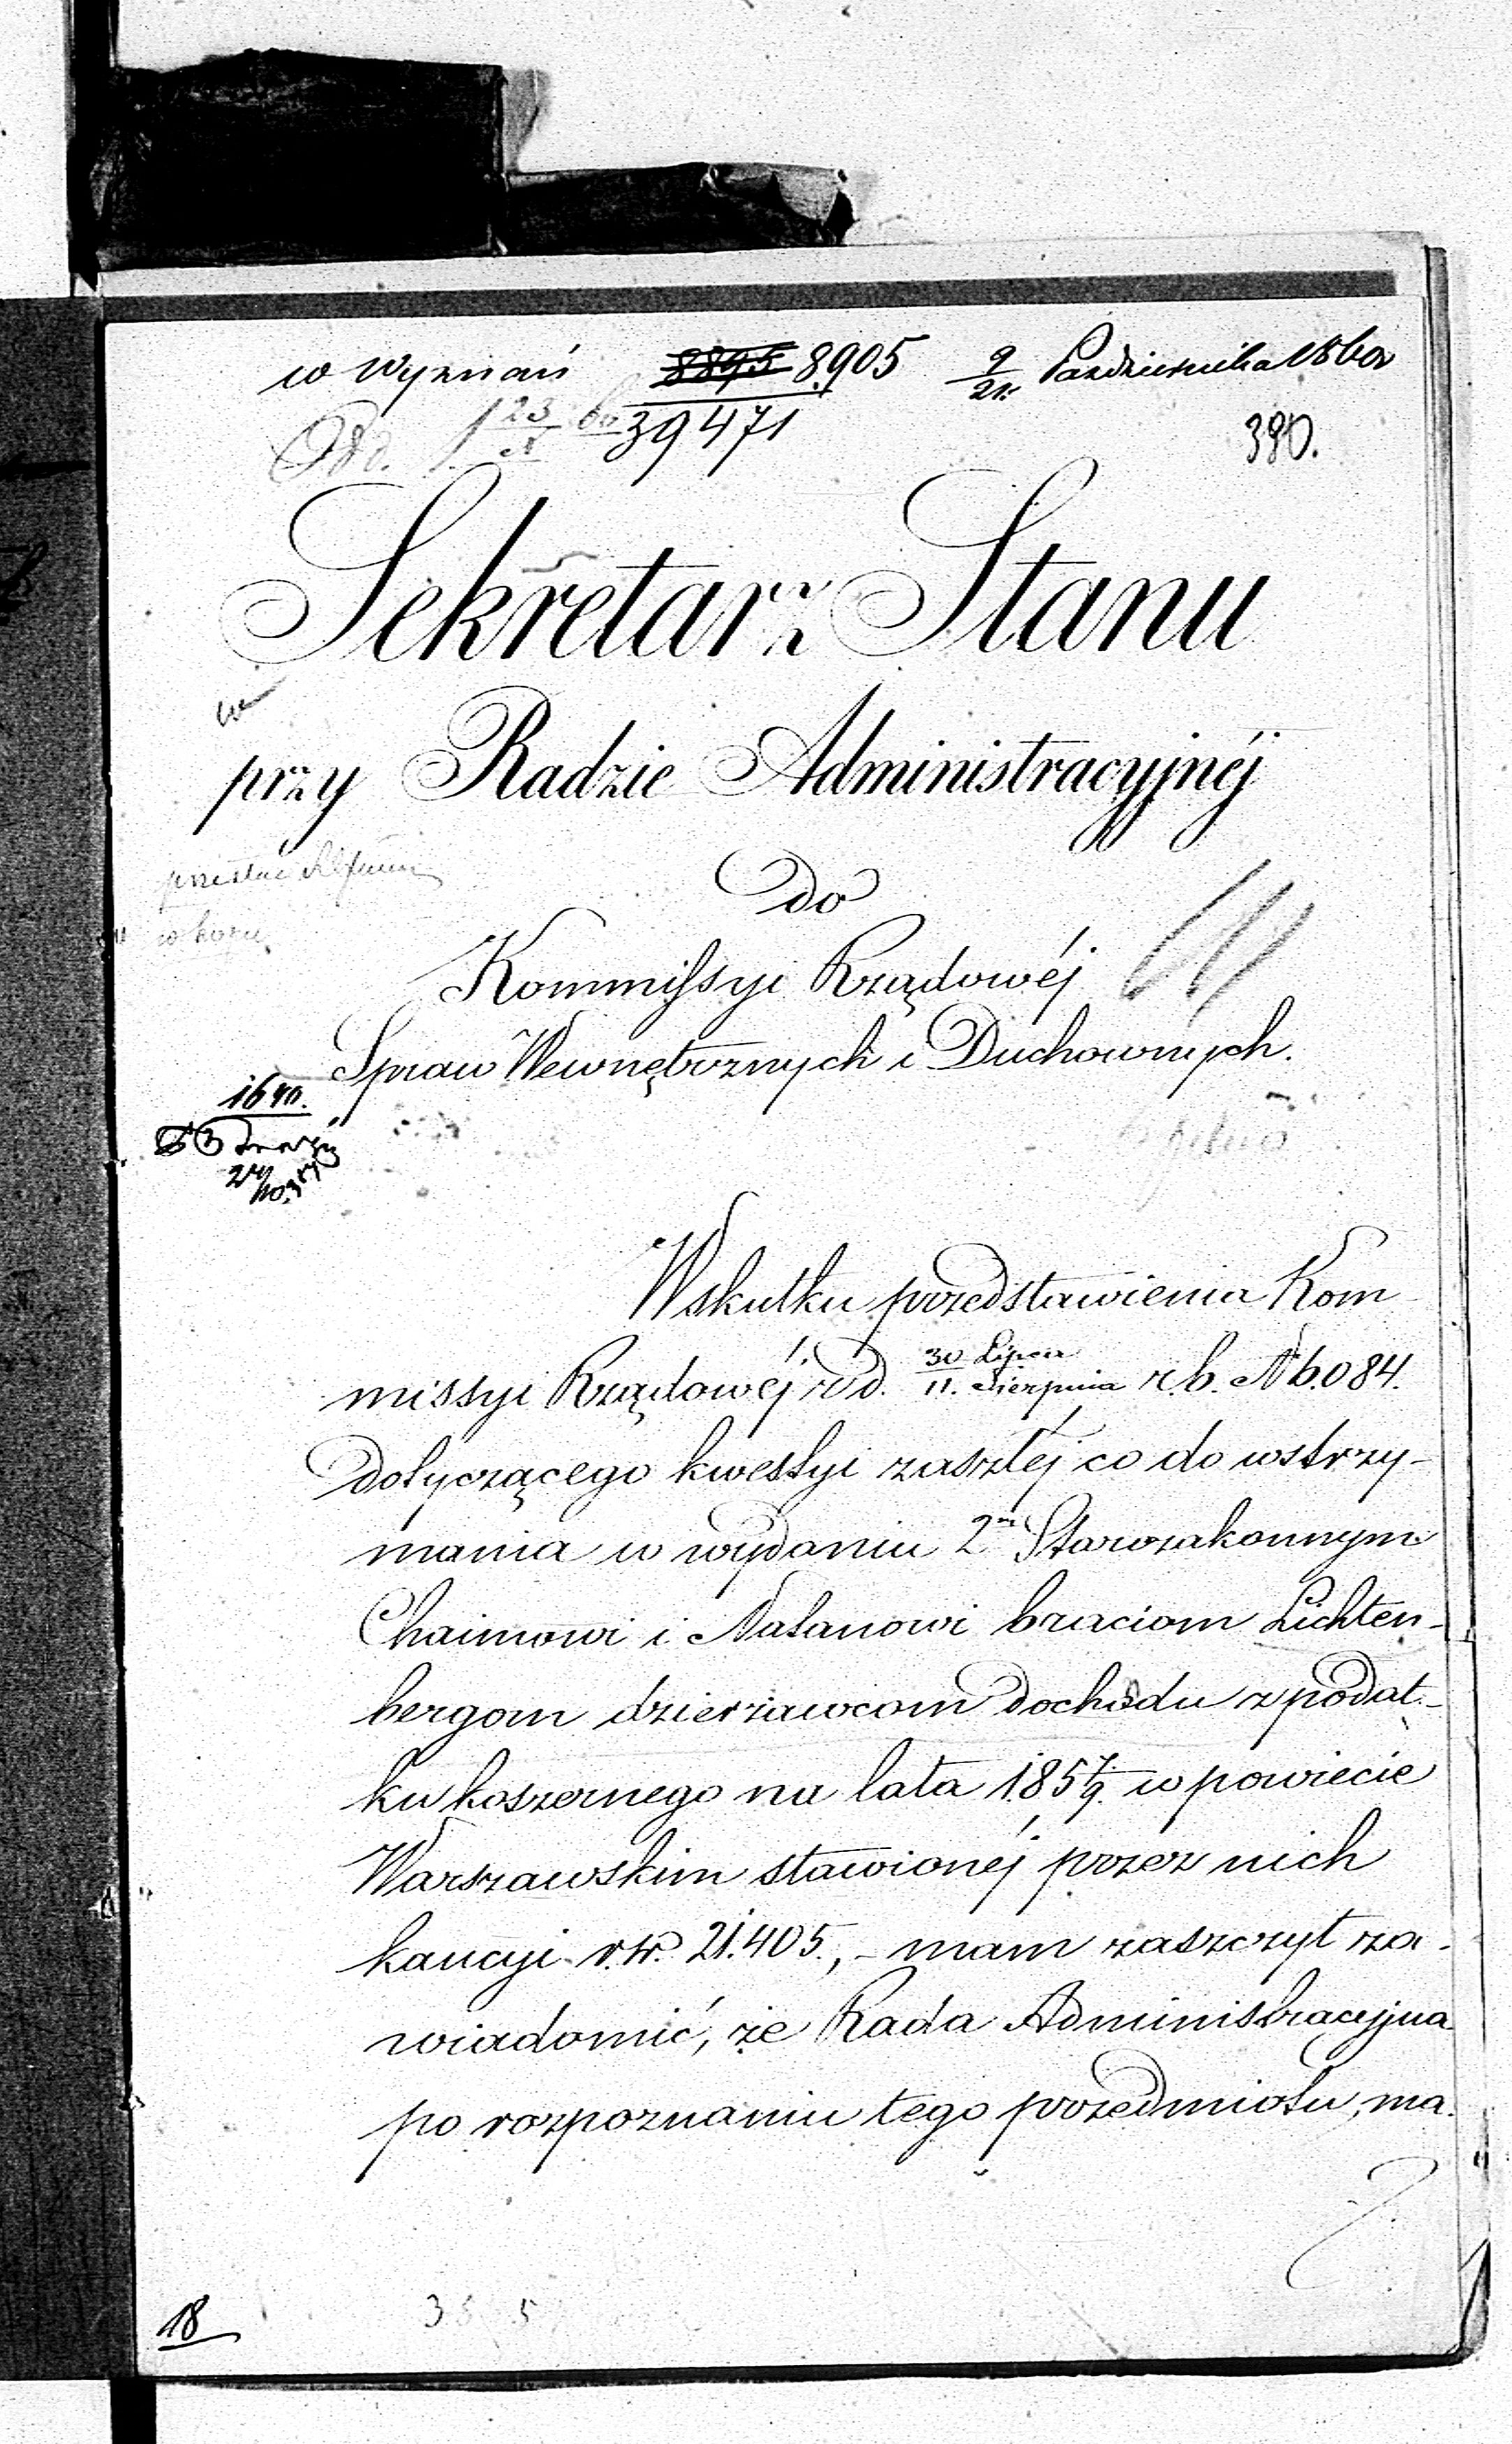 w Wyznań 8895 8905 9/21 Października 1860
39471
380.
Sekretarz Stanu
przy Radzie Administracyjnéj
do
Kommissyi Rządowéj
Spraw Wewnętrznych i Duchownych.
1640.
Wskutku przedstawienia Kom
missyi Rządowéj z d. 30 Lipca/11. Sierpnia r.b. N 6.084.
dotyczącego kwestyi zaszłéj co do wstrzy-
mania w wydaniu 2m Starozakonnym
Chaimowi i Natanowi braciom Lichten-
bergom dzierżawcom dochodu z podat-
ku koszernego na lata 1857/9. w powiecie
Warszawskim stawionéj przez nich
kaucyi r.sr. 21.405., - mam zaszczyt za-
wiadomić, że Rada Administracyjna
po rozpoznaniu tego przedmiotu, ma
18